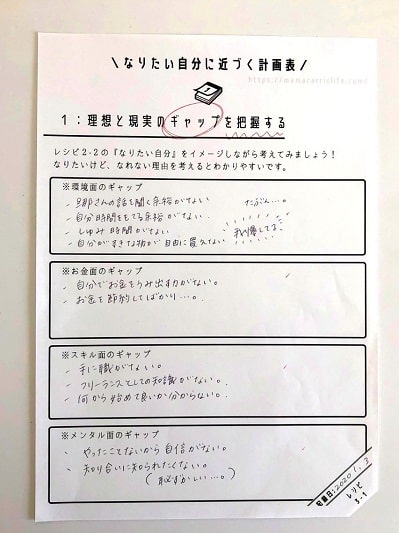 \ なりたい自分に近づく計画表 /
1:理想と現実のギャップを把握する
レシピ2-2の『なりたい自分』をイメージしながら考えてみましょう!
なりたいけど、なれない理由を考えるとわかりやすいです。
※環境面のギャップ
・旦那さんの話を聞く余裕がない
たぶん…。
・自分時間をもてる余裕がない。
・しゅみ時間がない
我慢してる!
・自分がすきな物が自由に買えない
※お金面のギャップ
・自分でお金をうみ出す力がない。
・お金を節約してばかり…。
※スキル面のギャップ
・手に職がない。
・フリーランスとしての知識がない。
・何から始めて良いか分からない。
※メンタル面のギャップ
・やったことないから自信がない。
・知り合いに知られたくない。
(恥ずかしい…。)
記載日:2020/1.3
レシピ
3-1